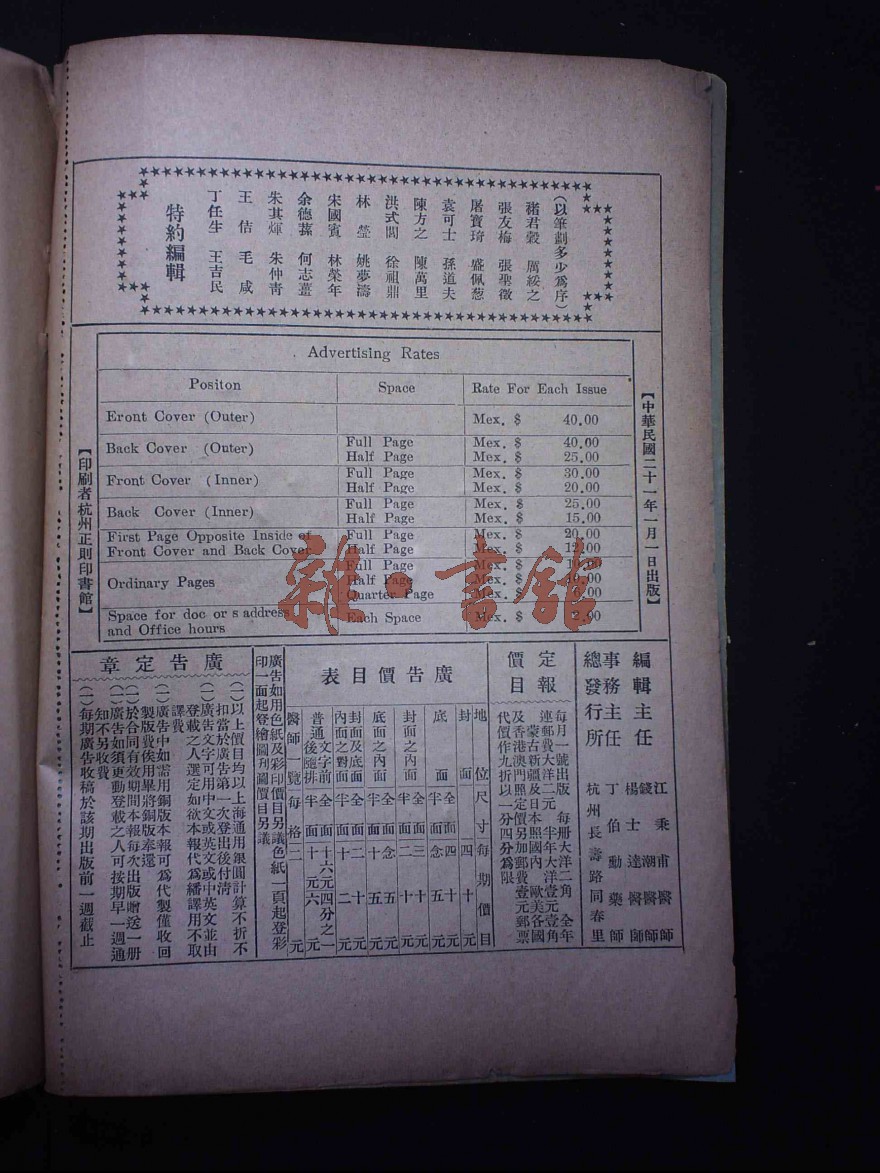 (以筆劃多少為序)
褚君毅 厲綏之
張友梅 張聖徵
屠寶琦 盛佩葱
袁可士 孫道夫
陳方之 陳萬里
洪式閭 徐祖鼎
林瑩 姚夢濤
宋國賓 林榮年
余德蓀 何志薑
朱其煇 朱仲青
王佶 毛咸
丁任生 王吉民
特約編輯
【中華民國二十一年一月一日出版】
Advertising Rates
Positon Space Rate For Each Issue
Eront Cover (Outer) Mex. $ 40.00
Back Cover (Outer) Full Page Mex. $ 40.00
Half Page Mex. $ 25.00
Front Cover (Inner) Full Page Mex. $ 30.00
Half Page Mex. $ 20.00
Back Cover (Inner) Full Page Mex. $ 25.00
Half Page Mex. $ 15.00
First Page Opposite Inside of Full Page Mex. $ 20.00
Front Cover and Back Cover Half Page Mex. $ 12.00
Ordinary Pages Full Page Mex. $
Half Page Mex. $ 10.00
Quarter Page Mex. $ 6.00
Space for doc or s address
and Office hours Each Space Mex. $ 2.00
【印刷者杭州正則印書館】
編輯主任 江秉甫醫師
錢潮醫師
楊士達醫師
事務主任 丁伯勳藥師
總發行所 杭州長壽路同春里
定報價目
每月一號出版 每冊大洋二角 全年
連郵費大洋二元 半年大洋壹元壹角
蒙古新疆及日本照國內 歐美各國
及香港澳門照定價另加郵費壹元郵票
代價作九折以一分四分為限
廣告價目表
地位 尺寸 每期價目
封面 四十元
底面 全面 四十元
半面 念五元
封面之內面 全面 三十元
半面 二十元
底面之內面 全面 念五元
半面 十五元
封面及底面內面之對面 全面 二十元
半面 十二元
普通 文字前後隨排 全面 十六元 四分之一
半面 十元 六元
醫師一覽 每格 二元
廣告如用色紙及彩印價目另議色紙一頁起登彩
印一面起登繪圖刊圖價目另議
廣告定章
(一)以上價目均以上海通用銀圓計算不折不
扣當於廣告第一次登出後付清
(一)廣告文字可用中文或英文或中英文並由
登載之人選定如欲本報代為繙譯用不取
譯費
(一)廣告中如需用銅版本報可為代製僅收回
製版費俟用畢將銅版奉還
(一)於合同有效期間本報每次出版贈送一册
(一)廣告如須更動登載之人可按期早一週通
知不另收費
(一)每期廣告收稿於該期出版前一週截止
雜·書館